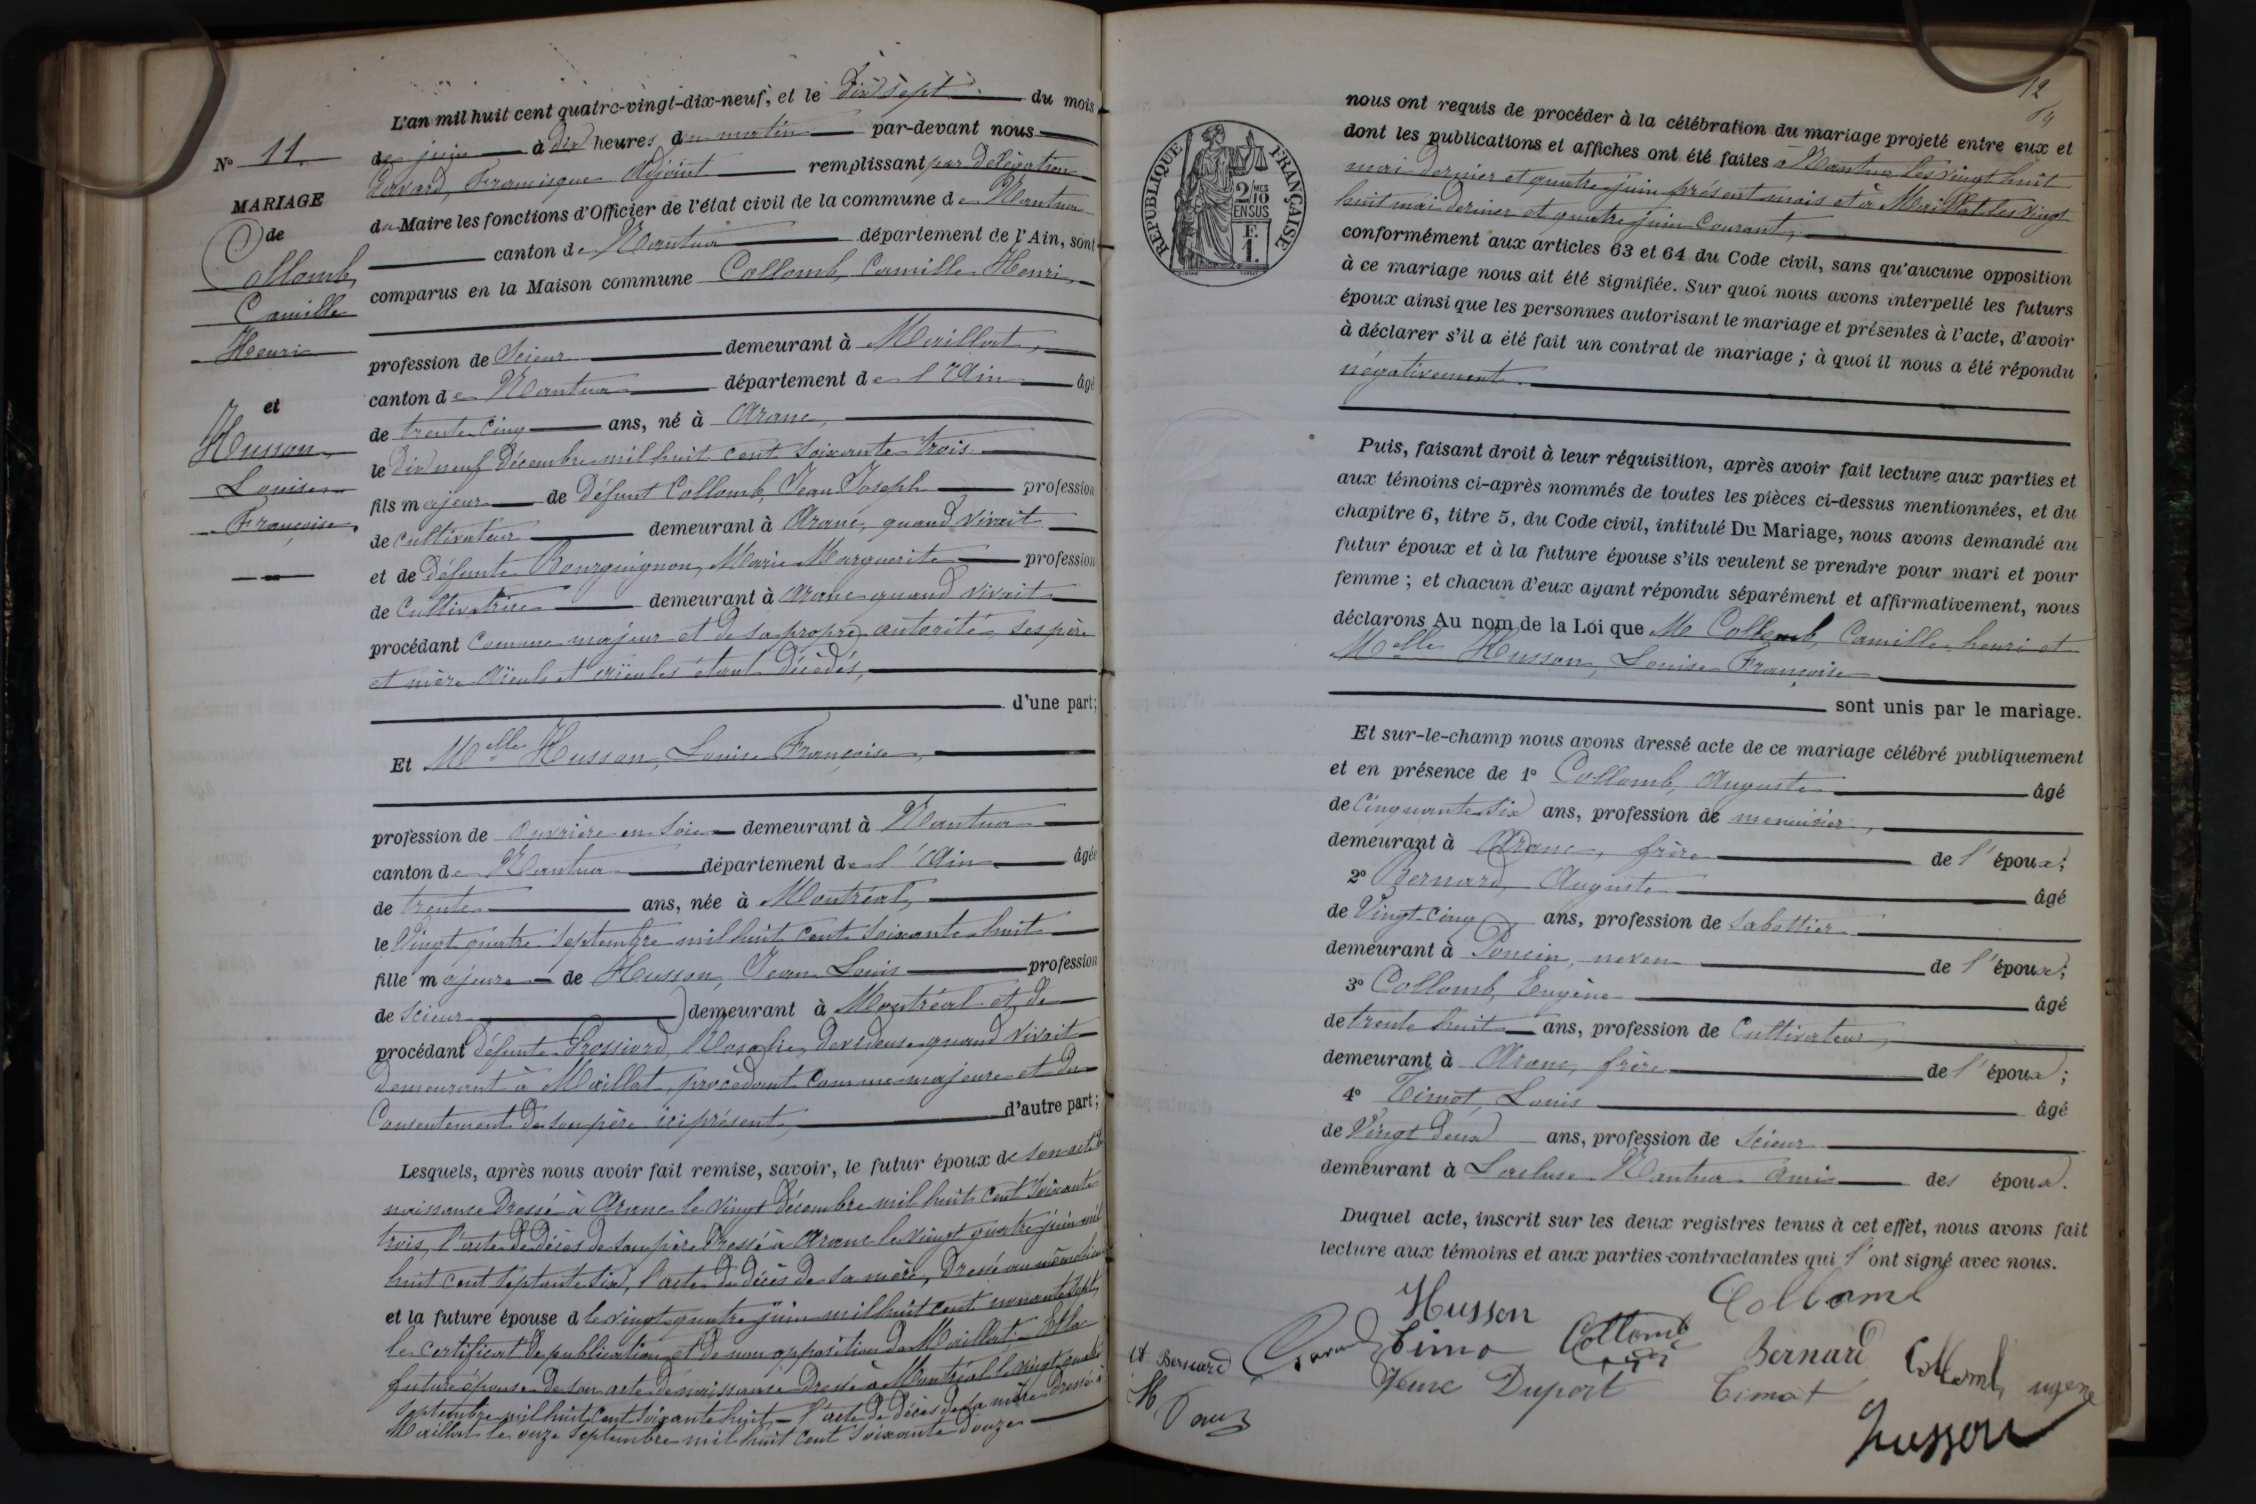 N° 11.
MARIAGE
de
Collomb
Camille
Henri
et
Husson
Louise
Françoise
L'an mil huit cent quatre-vingt-dix-neuf, et le dix sept du mois
de juin à dix heures du matin par-devant nous
Francisque Adjoint remplissant par délégation
du Maire les fonctions d'Officier de l'état civil de la commune de Nantua
canton de Nantua département de l'Ain, sont
comparus en la Maison commune Collomb, Camille Henri,
profession de Scieur demeurant à Maillat,
canton de Nantua département de l'Ain âgé
de trente cinq ans, né à Aranc,
le dix neuf Décembre mil huit cent soixante trois
fils majeur de défunt Collomb, Jean Joseph profession
de cultivateur demeurant à Aranc, quand vivait
et de défunte Bourguignon, Marie Marguerite profession
de Cultivatrice demeurant à Aranc quand vivait
procédant comme majeur et de sa propre autorité ses père
et mère aïeuls et aïeules étant décédés,
d'une part;
Et Melle Husson, Louise Françoise,
profession de ouvrière en soie demeurant à Nantua
canton de Nantua département de l'Ain âgée
de trente ans, née à Montréal,
le Vingt quatre septembre mil huit cent soixante huit
fille majeure de Husson, Jean Louis profession
de scieur demeurant à Montréal et de
procédant défunte Grossiord, Rosalie, dévideuse quand vivait
demeurant à Maillat, procédant comme majeure et du
Consentement de son père ici présent, d'autre part;
Lesquels, après nous avoir fait remise, savoir, le futur époux de son acte de
naissance dressé à Aranc le vingt décembre mil huit cent soixante
trois, l'acte de décès de son père dressé à Aranc le vingt quatre juin mil
huit cent septante six, l'acte de décès de sa mère, dressé au même lieu
et la future épouse d le vingt quatre juin mil huit cent nonante sept,
le certificat de publication et de non opposition de Maillat. Et la
future épouse de son acte de naissance dressé à Montréal le vingt quatre
septembre mil huit cent soixante huit - l'acte de décès de sa mère dressé à
Maillat le onze septembre mil huit cent soixante douze
12
RÉPUBLIQUE FRANÇAISE
2/10 EN SUS
F.
1.
nous ont requis de procéder à la célébration du mariage projeté entre eux et
dont les publications et affiches ont été faites à Nantua les vingt huit
mai dernier et quatre juin présent mois et à Maillat les vingt
huit mai dernier et quatre juin courant,
conformément aux articles 63 et 64 du Code civil, sans qu'aucune opposition
à ce mariage nous ait été signifiée. Sur quoi nous avons interpellé les futurs
époux ainsi que les personnes autorisant le mariage et présentes à l'acte, d'avoir
à déclarer s'il a été fait un contrat de mariage ; à quoi il nous a été répondu
négativement.
Puis, faisant droit à leur réquisition, après avoir fait lecture aux parties et
aux témoins ci-après nommés de toutes les pièces ci-dessus mentionnées, et du
chapitre 6, titre 5, du Code civil, intitulé Du Mariage, nous avons demandé au
futur époux et à la future épouse s'ils veulent se prendre pour mari et pour
femme ; et chacun d'eux ayant répondu séparément et affirmativement, nous
déclarons Au nom de la Loi que M Collomb, Camille henri et
Melle Husson, Louise Françoise
sont unis par le mariage.
Et sur-le-champ nous avons dressé acte de ce mariage célébré publiquement
et en présence de 1° Collomb, Auguste âgé
de Cinquante six ans, profession de menuisier,
demeurant à Aranc, frère de l'époux;
2° Bernard, Auguste âgé
de Vingt cinq ans, profession de sabottier
demeurant à Poncin, neveu de l'époux;
3° Collomb, Eugène âgé
de trente huit ans, profession de Cultivateur,
demeurant à Aranc, frère de l'époux;
4° Timot, Louis âgé
de Vingt deux ans, profession de Scieur
demeurant à Lacluse Nantua ami des époux.
Duquel acte, inscrit sur les deux registres tenus à cet effet, nous avons fait
lecture aux témoins et aux parties contractantes qui l'ont signé avec nous.
Husson Collomb
Timo Collomb Bernard Collomb ugene
Bernard
Dupont Timot
Husson